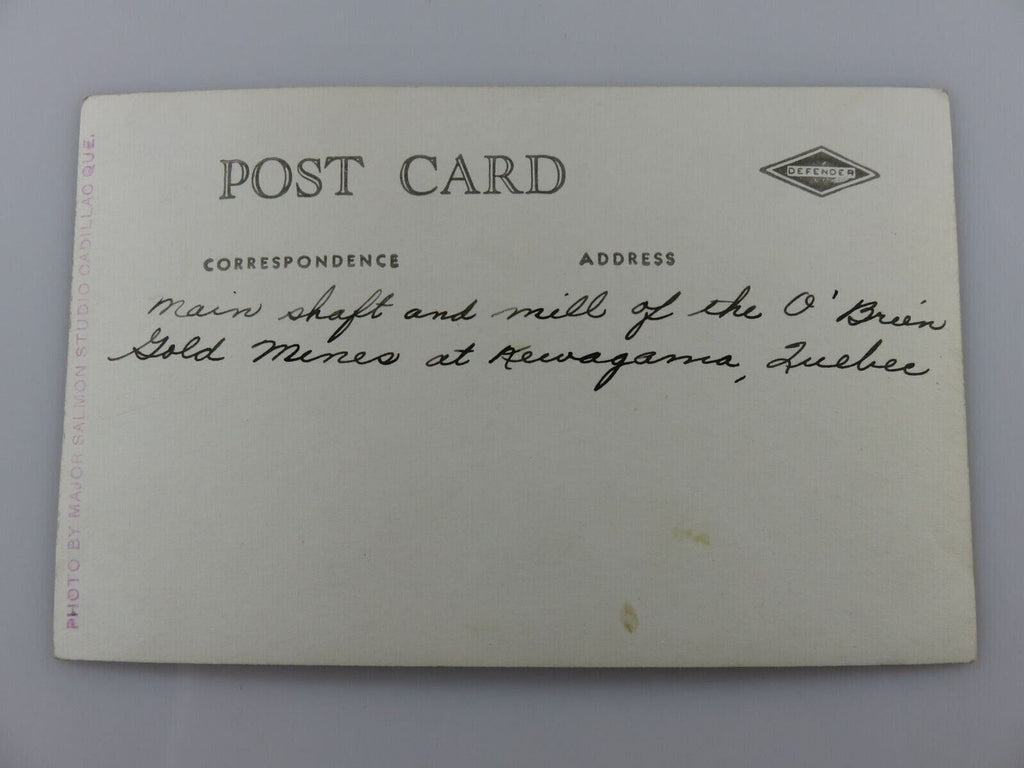 POST CARD
DEFENDER
CORRESPONDENCE
ADDRESS
Main shaft and mill of the O'Brien
Gold Mines at Kewagama, Quebec
PHOTO BY MAJOR SALMON STUDIO CADILLAC QUE.